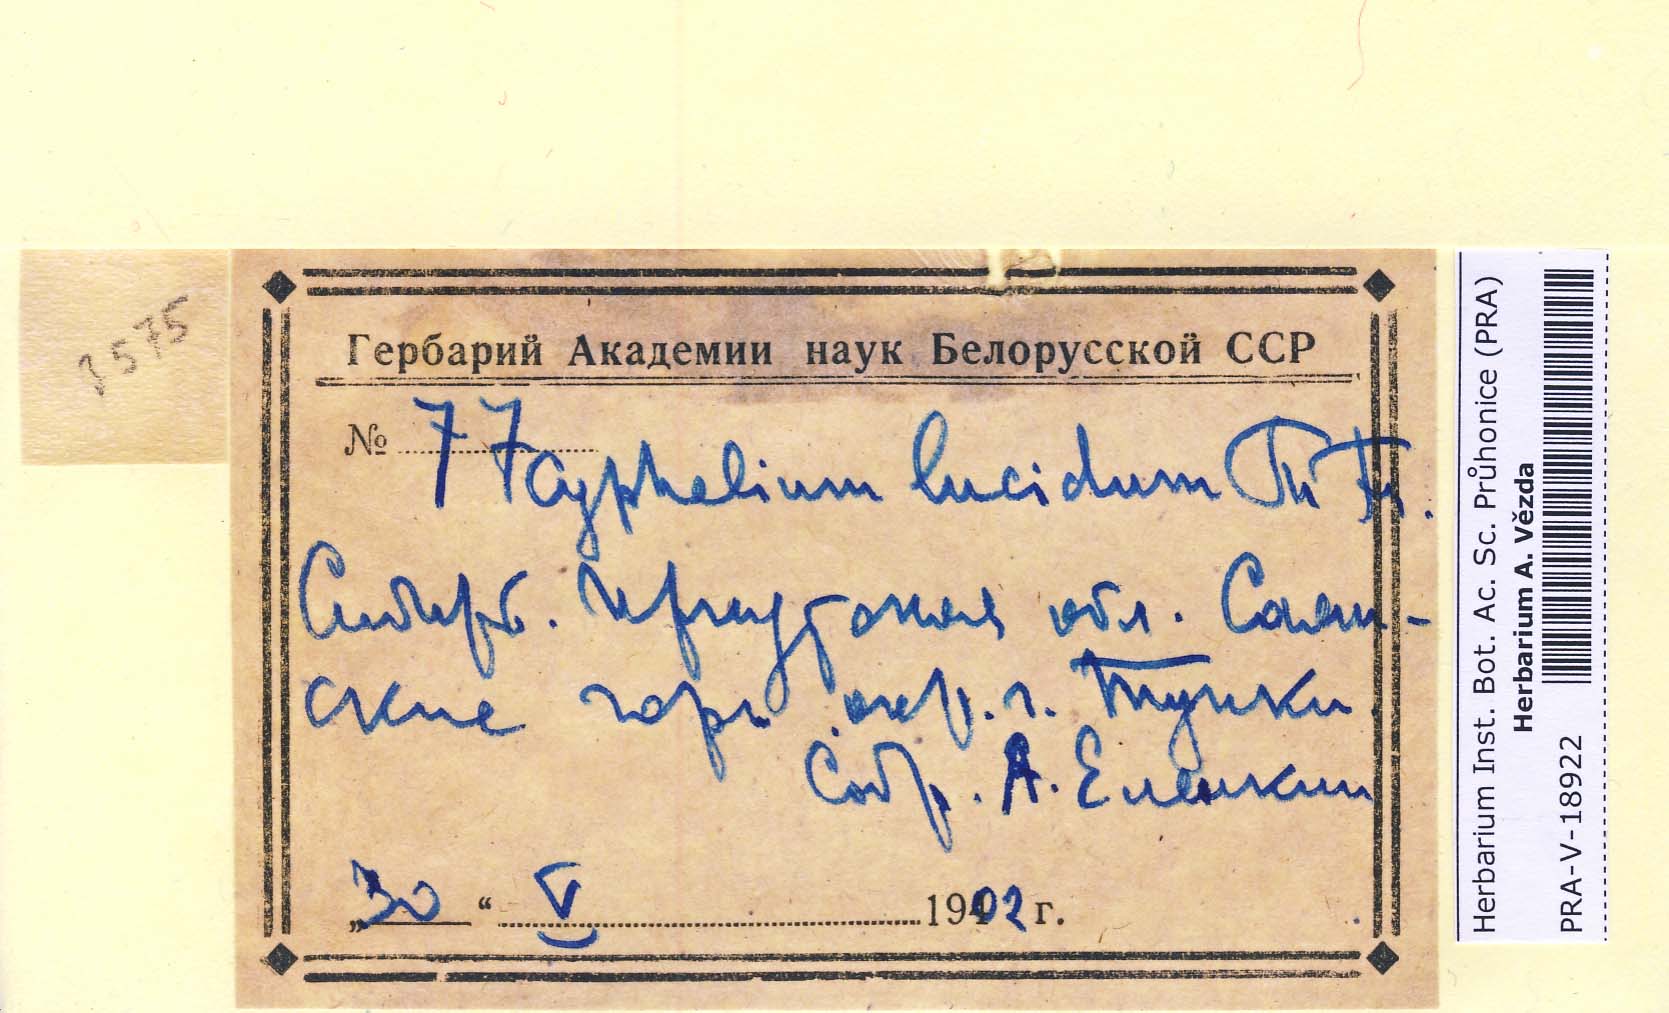 3575
Гербарий Академии наук Белорусской ССР
№ 77 Cyphelium lucidum Th Fr.
Сибирь. Иркутская обл. Саян-
ские горы окр. г. Тунки
Собр. А. Еленкин
„30“ V 1902 г.
Herbarium Inst. Bot. Ac. Sc. Průhonice (PRA)
Herbarium A. Vězda
PRA-V-18922